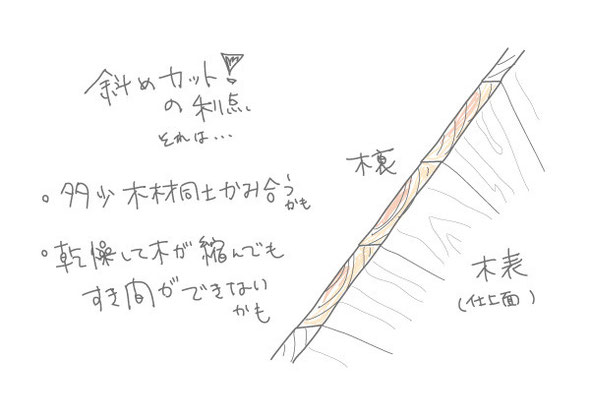 斜めカット!
の利点
それは…
。多少木材同士かみ合うかも
。乾燥して木が縮んでも
すき間ができない
かも
木裏
木表
(仕上面)